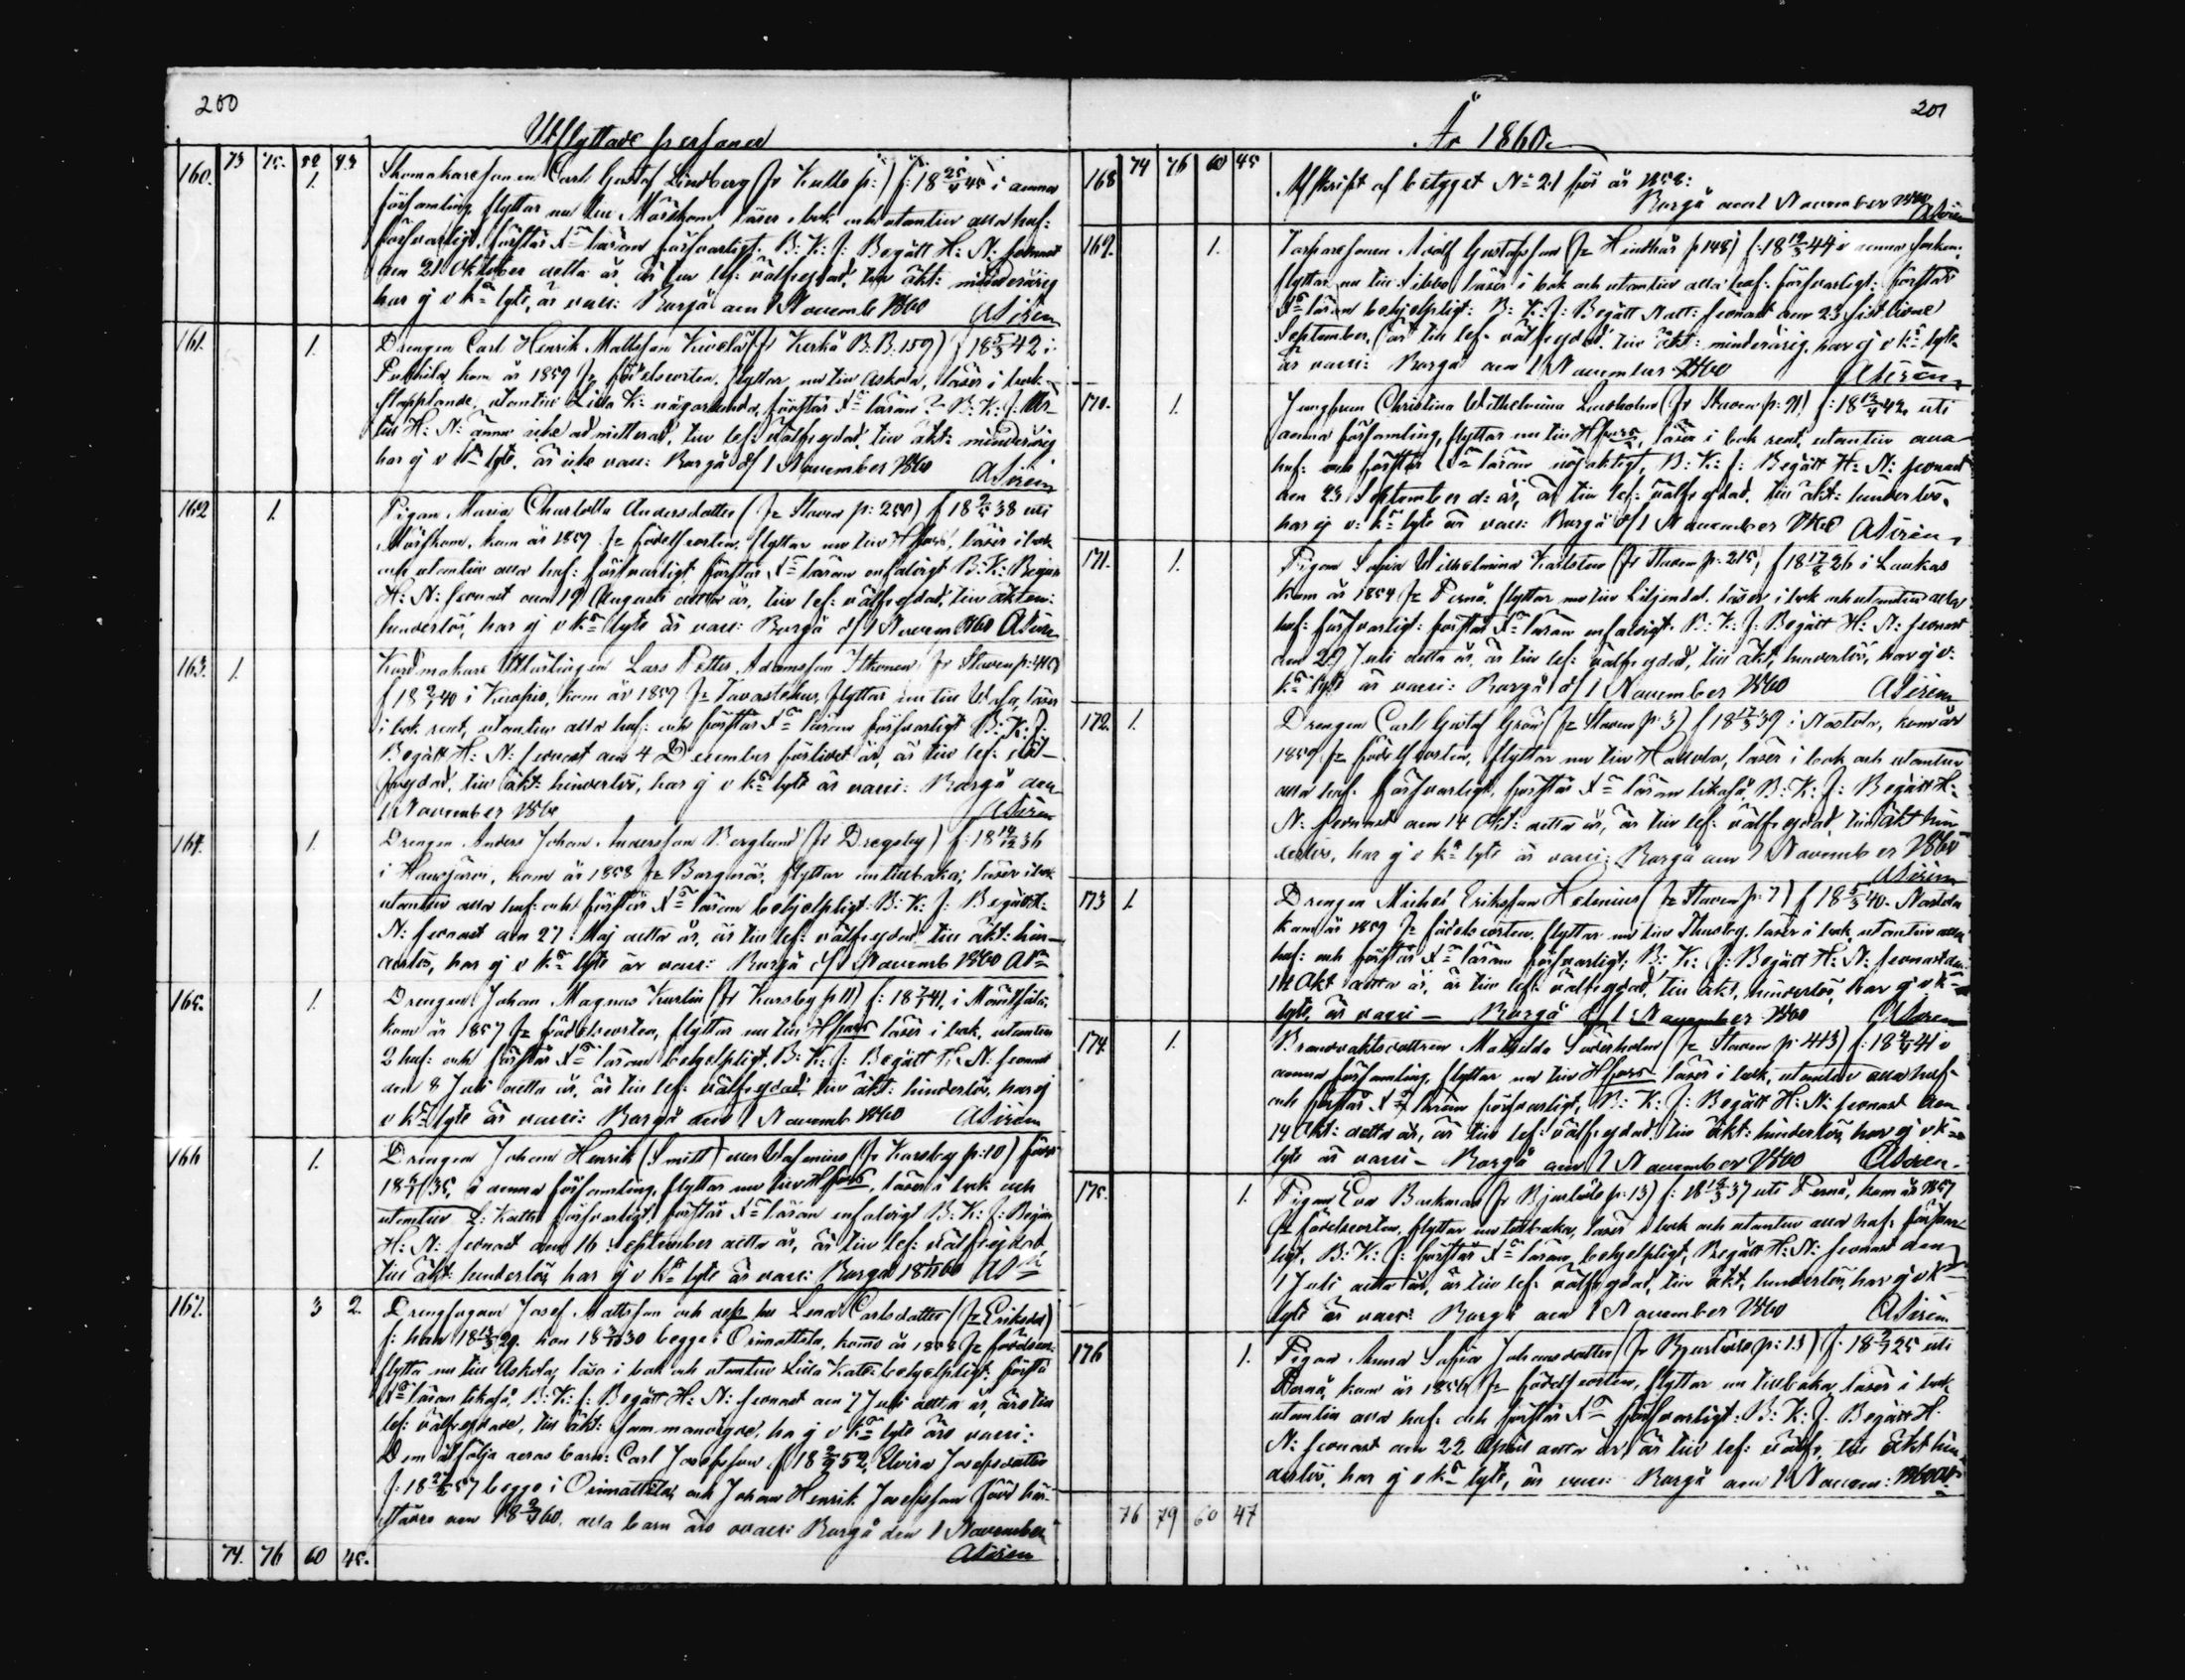 200
Utflyttade personer
73 75. 52 43
160. 1. Skomakaresonen Carl Gustaf Lindberg (fr Kullo p:) f: 18 25/4 45 i denna
församling, flyttar nu till Mörskom läser i bok och utantill alla huf:
försvarligt, förstår Xs läran försvarligt. B: K: f: Begått H: N: senast
den 21 Oktober detta år, är till lef: välfrejdad, till äkt: minderårig
har ej v ks lyte, är vacc: Borgå den 1 Novemb 1860 ASirén
161. 1. Drengen Carl Henrik Mattsson Kivelä (fr Kerkå B.B. 159) f 18 5/3 42 i
Pukkila kom år 1859 fr födelseorten, flyttar nu till Askola, läser i bok
stapplande, utantill Lilla K: någorlunda, förstår Xs läran? B: K: f:
till H: N: ännu icke admitterad, till lef: välfrejdad, till äkt: minderårig
har ej v ks lyte, är icke vacc: Borgå d/ 1 November 1860 ASirén
162 1. Pigan Maria Charlotta Andersdotter (fr Staden p: 250) f 18 2/5 38 uti
Mörskom, kom år 1859 fr födelseorten, flyttar nu till Hfors, läser i bok
och utantill alla huf: försvarligt, förstår Xs läran enfaldigt B: K: Begått
H: N: senast den 19 Augusti detta år, till lef: välfrejdad, till äkten:
hinderlös, har ej v ks lyte är vacc: Borgå d/ 1 Novem 1860 ASirén
163. 1. Lars Petter Adamsson Itkonen fr Staden
f 18 2/7 40 i Kuopio, kom år 1859 fr Tavastehus, flyttar nu till Wasa, läser
i bok rent, utantill alla huf: och förstår Xs läran försvarligt B: K: f:
Begått H: N: senast den 4 December förlidet år, är till lef: väl-
frejdad, till äkt: hinderlös, har ej v ks lyte är vacc: Borgå den
1 November 1860 ASirén
164. 1. Drengen Anders Johan Andersson Berglund (fr Dregsby) f: 18 19/12 36
i Hausjärvi, kom år 1858 fr Borgnäs, flyttar nu tillbaka, läser i bok
utantill alla huf: och förstår Xs läran behjelpligt: B: K: f: Begått H:
N: senast den 27 Maj detta år, är till lef: välfrejdad till äkt: hin-
derlös, har ej v ks lyte är vacc: Borgå d/ 1 Novemb 1860 ASn
165. 1. Drengen Johan Magnus Kurlin (fr Karsby p 11) f: 18 7/7 41, i Mäntsälä,
kom år 1857 fr födelseorten, flyttar nu till Hfors läser i bok, utantill
2 huf: och förstår Xs läran behjelpligt. B: K: f: Begått H: N: senast
den 8 Juli detta år, är till lef: välfrejdad, till äkt: hinderlös, har ej
v ks lyte är vacc: Borgå den 1 Novemb 1860 ASirén
166 1. Drengen Johan Henrik (Smitt) eller Wasenius (fr Karsby p: 10) född
18 35, i denna församling, flyttar nu till Hfors, läser i bok och
utantill L: Kathe försvarligt, förstår Xs läran enfaldigt B: K: f: Begått
H: N: senast den 16 September detta år, är till lef: välfrejdad
till äkt: hinderlös, har ej v ks lyte är vacc: Borgå 18 1/11 60 ASn
167. 3 2. Drengfogden Josef Mattsson och dess hu Lena Carlsdotter (fr Eriksdal)
f: han 18 29. hon 18 30 begge i Orimattila, komo år 1858 fr födelseort:
flytta nu till Askola, läsa i bok och utantill Lilla Kate: behjelpligt, förstå
Xs läran likaså, B: K: f: Begått H: N: senast den 7 Juli detta år, äro till
lef: välfrejdade, till äkt: sammanvigde, ha ej v ks lyte äro vacci:
Dem åtfölja deras barn: Carl Josefsson f 18 2/3 52, Elvira Josefsdotter
f: 18 57 begge i Orimattila, och Johan Henrik Josefsson född här-
städes den 18 60, alla barn äro ovacc: Borgå den 1 November
ASirén
74. 76 60 45.
201
År 1860.
74 76 60 45
168 Afskrift af betyget No 21 för år 1858:
Borgå den 1 November 1860 ASirén
169. 1. Adolf Gustafsson (fr Hindhår p 148) f: 18 19/3 44 i denna socken,
flyttar nu till Sibbo, läser i bok och utantill alla huf: försvarligt: förstår
Xs läran behjelpligt: B: K: f: Begått Natt: senast den 23 sistlidne
September, är till lef: välfrejdad, till äkt: minderårig, har ej v ks lyte
är vacci: Borgå den 1 November 1860 ASirén
170. 1. Jungfrun Christina Wilhelmina Lindholm (fr Staden p: 91) f: 18 42, uti
denna församling, flyttar nu till Hfors, läser i bok rent, utantill alla
huf: och förstår Xs läran nöjaktigt, B: K: f: Begått H: N: senast
den 23 September d: år, är till lef: välfrejdad, till äkt: hinderlös,
har ej v: ks lyte är vacc: Borgå d/ 1 November 1860 ASirén
171. 1. Pigan Sofia Wilhelmina Karlsten (fr Staden p: 215, f 18 17/8 26 i Laukas
kom år 1854 fr Pernå, flyttar nu till Liljendal, läser i bok och utantill alla
huf: försvarligt: förstår Xs läran enfaldigt. B: K: f: Begått H: N: senast
den 29 Juli detta år, är till lef: välfrejdad, till äkt: hinderlös, har ej v:
ks lyte är vacci: Borgå d/ 1 November 1860 ASirén
172. 1. Drengen Carl Gustaf Grön (fr Staden p: 3) f 18 17/3 39 i Nastola, kom år
1859 fr födelseorten, flyttar nu till Hollola, läser i bok och utantill
alla huf: försvarligt, förstår Xs läran likaså, B: K: f: Begått H:
N: senast den 14 Okt: detta år, är till lef: välfrejdad, till äkt hin-
derlös, har ej v ks lyte är vacci: Borgå den 1 November 1860
ASirén
173 1. Drengen Michel Eriksson Helenius (fr Staden p: 7) f 18 5/3 40. Nastola
kom år 1859 fr födelseorten, flyttar nu till Thusby, läser i bok, utantill alla
huf: och förstår Xs läran försvarligt, B: K: f: Begått H: N: senast den
14 Okt detta år, är till lef: välfrejdad, till äkt, hinderlös, har ej v ks
lyte, är vacci – Borgå d/ 1 November 1860 ASirén
174. 1. Brandvaktsdottren Mathilda Söderholm (fr Staden p: 443) f: 18 41 i
denna församling, flyttar nu till Hfors läser i bok, utantill alla huf:
och förstår Xs läran försvarligt, B: K: f: Begått H: N: senast den
14 Okt: detta år, är till lef: välfrejdad, till äkt: hinderlös, har ej v ks
lyte är vacci – Borgå den 1 November 1860 ASirén
175. 1. Pigan Eva Backman (fr Bjurböle p: 13) f: 18 37 uti Pernå, kom år 1857
fr födelseorten, flyttar nu tillbaka, läser i bok och utantill alla huf: försvar
ligt, B: K: f: förstår Xs läran behjelpligt, Begått H: N: senast den
1 Juli detta år, är till lef: välfrejdad, till äkt, hinderlös, har ej v ks
lyte är vacc: Borgå den 1 November 1860 ASirén
176 1. Pigan Anna Sofia Johansdotter (fr Bjurböle p: 13) f: 18 25 uti
Pernå, kom år 1856 fr födelseorten, flyttar nu tillbaka, läser i bok,
utantill alla huf: och förstår Xs försvarligt: B: K: f: Begått H:
N: senast den 22 April detta år, är till lef: välfr, till äkt hin-
derlös, har ej v ks lyte, är vacc: Borgå den 1 Novem: 1860 ASn
76 79 60 47